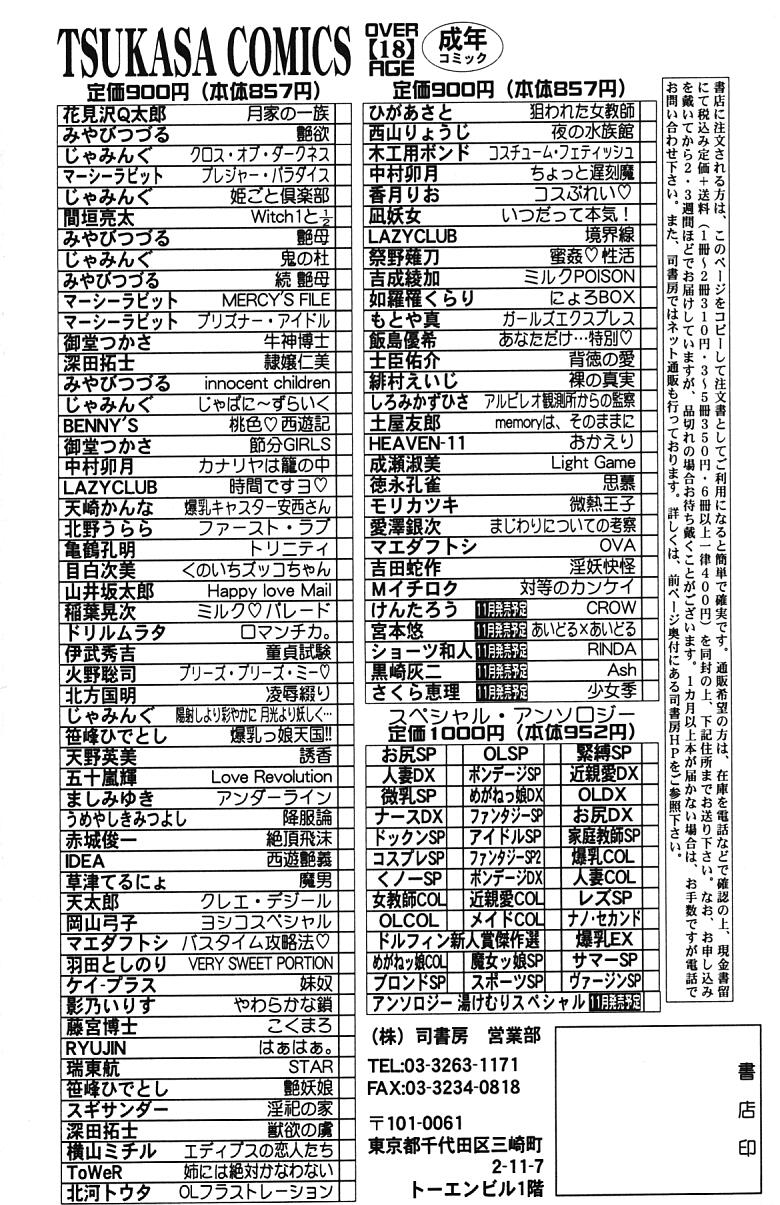 TSUKASA COMICS
OVER
【18】
AGE
成年
コミック
定価900円（本体857円）
花見沢Q太郎 月家の一族
みやびつづる 艶欲
じゃみんぐ クロス・オブ・ダークネス
マーシーラビット プレジャー・パラダイス
じゃみんぐ 姫ごと倶楽部
間垣亮太 Witch1と½
みやびつづる 艶母
じゃみんぐ 鬼の杜
みやびつづる 続 艶母
マーシーラビット MERCY'S FILE
マーシーラビット プリズナー・アイドル
御堂つかさ 牛神博士
深田拓士 隷嬢仁美
みやびつづる innocent children
じゃみんぐ じゃぱに〜ずらいく
BENNY'S 桃色♡西遊記
御堂つかさ 節分GIRLS
中村卯月 カナリヤは籠の中
LAZYCLUB 時間ですヨ♡
天崎かんな 爆乳キャスター安西さん
北野うらら ファースト・ラブ
亀鶴孔明 トリニティ
目白次美 くのいちズッコちゃん
山井坂太郎 Happy love Mail
稲葉晃次 ミルク♡パレード
ドリルムラタ ロマンチカ。
伊武秀吉 童貞試験
火野聡司 プリーズ・プリーズ・ミー♡
北方国明 凌辱綴り
じゃみんぐ 陽射しより彩やかに 月光より妖しく…
笹峰ひでとし 爆乳っ娘天国!!
天野英美 誘香
五十嵐輝 Love Revolution
ましみゆき アンダーライン
うめやしきみつよし 降服論
赤城俊一 絶頂飛沫
IDEA 西遊艶義
草津てるにょ 魔男
天太郎 クレエ・デジール
岡山弓子 ヨシコスペシャル
マエダフトシ バスタイム攻略法♡
羽田としのり VERY SWEET PORTION
ケイ-プラス 妹奴
影乃いりす やわらかな鎖
藤宮博士 こくまろ
RYUJIN はぁはぁ。
瑞東航 STAR
笹峰ひでとし 艶妖娘
スギサンダー 淫祀の家
深田拓士 獣欲の虜
横山ミチル エディプスの恋人たち
ToWeR 姉には絶対かなわない
北河トウタ OLフラストレーション
定価900円（本体857円）
ひがあさと 狙われた女教師
西山りょうじ 夜の水族館
木工用ボンド コスチューム・フェティッシュ
中村卯月 ちょっと遅刻魔
香月りお コスぷれい♡
凪妖女 いつだって本気！
LAZYCLUB 境界線
祭野薙刀 蜜姦♡性活
吉成綾加 ミルクPOISON
如羅罹くらり にょろBOX
もとや真 ガールズエクスプレス
飯島優希 あなただけ…特別♡
士臣佑介 背徳の愛
緋村えいじ 裸の真実
しろみかずひさ アルビレオ観測所からの監察
土屋友郎 memoryは、そのままに
HEAVEN-11 おかえり
成瀬淑美 Light Game
徳永孔雀 思慕
モリカツキ 微熱王子
愛澤銀次 まじわりについての考察
マエダフトシ OVA
吉田蛇作 淫妖快怪
Mイチロク 対等のカンケイ
けんたろう 11月発売予定 CROW
宮本悠 11月発売予定 あいどる×あいどる
ショーツ和人 11月発売予定 RINDA
黒崎灰二 11月発売予定 Ash
さくら恵理 11月発売予定 少女季
スペシャル・アンソロジー
定価1000円（本体952円）
お尻SP OLSP 緊縛SP
人妻DX ボンデージSP 近親愛DX
微乳SP めがねっ娘DX OLDX
ナースDX ファンタジーSP お尻DX
ドックンSP アイドルSP 家庭教師SP
コスプレSP ファンタジーSP2 爆乳COL
くノーSP ボンデージDX 人妻COL
女教師COL 近親愛COL レズSP
OLCOL メイドCOL ナノ・セカンド
ドルフィン新人賞傑作選 爆乳EX
めがねッ娘COL 魔女ッ娘SP サマーSP
ブロンドSP スポーツSP ヴァージンSP
アンソロジー 湯けむりスペシャル 11月発売予定
書店に注文される方は、このページをコピーして注文書としてご利用になると簡単で確実です。通販希望の方は、在庫を電話などで確認の上、現金書留
にて税込み定価＋送料（1冊〜2冊310円・3〜5冊350円・6冊以上一律400円）を同封の上、下記住所までお送り下さい。なお、お申し込み
を戴いてから2・3週間ほどでお届けしていますが、品切れの場合お待ち戴くことがございます。1カ月以上本が届かない場合は、お手数ですが電話で
お問い合わせ下さい。また、司書房ではネット通販も行っております。詳しくは、前ページ奥付にある司書房HPをご参照下さい。
（株）司書房 営業部
TEL:03-3263-1171
FAX:03-3234-0818
〒101-0061
東京都千代田区三崎町
2-11-7
トーエンビル1階
書店印